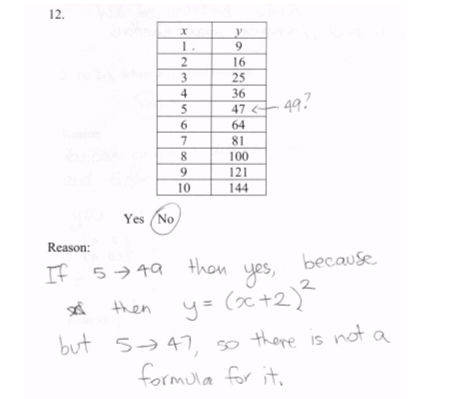 12.
x y
1. 9
2 16
3 25
4 36
5 47 ← 49?
6 64
7 81
8 100
9 121
10 144
Yes No
Reason:
If 5→49 then yes, because
then y = (x+2)²
but 5→47, so there is not a
formula for it.